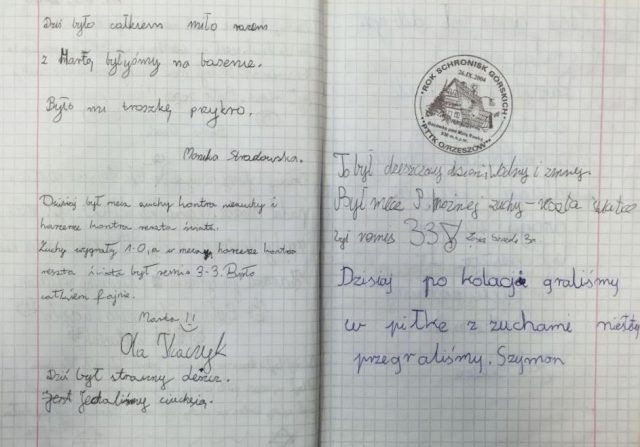 Dziś było całkiem miło razem
z Martą byłyśmy na basenie.
Było mi troszkę przykro.
Monika
Dzisiaj był mecz zuchy kontra niezuchy i
harcerze kontra reszta świata.
Zuchy wygrały 1-0, a w meczu harcerze kontra
reszta świata był remis 3-3. Było
całkiem fajnie.
Marta!!
Ola Tkaczyk
Dziś był straszny deszcz.
Jest
ROK SCHRONISK GÓRSKICH
26.IX.2004
PTTK O/RZESZÓW
To był deszczowy dzień, i zimny.
Był mecz P. nożnej zuchy - reszta świata
był remis 33
Dzisiaj po kolacji graliśmy
w piłkę z zuchame niestety
przegraliśmy. Szymon